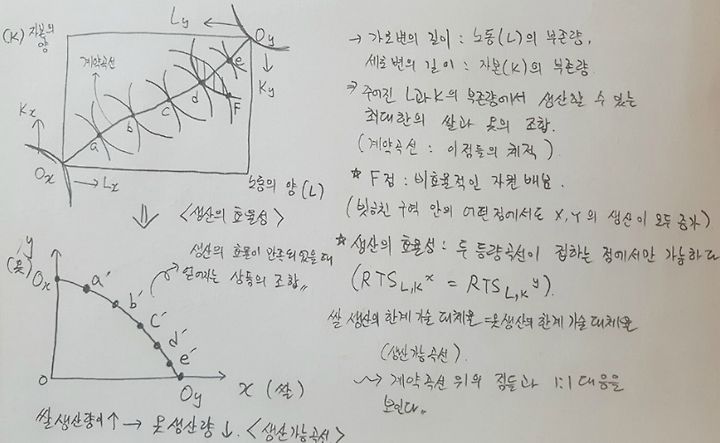 (K) 자본의 양
Ly
Oy
계약곡선
e
Ky
d
F
c
b
a
Kx
Ox
→ Lx
노동의 양 (L)
<생산의 효율성>
y
(옷)
Ox
a'
b'
c'
d'
e'
생산의 효율이 만족되었을 때
얻어지는 상품의 조합〃
0
Oy
X (쌀)
쌀 생산량이 ↑ → 옷 생산량 ↓. <생산가능곡선>
→ 가로변의 길이 : 노동(L)의 부존량,
세로변의 길이 : 자본(K)의 부존량.
⇒ 주어진 L과 K의 부존량에서 생산할 수 있는
최대한의 쌀과 옷의 조합.
(계약곡선 : 이점들의 궤적).
★ F점 : 비효율적인 자원 배분.
(빗금친 구역 안의 어떤점에서도 X, Y의 생산이 모두 증가)
★ 생산의 효율성 : 두 등량곡선이 접하는 점에서만 가능하다
(RTS L,K ˣ = RTS L,K ʸ).
쌀 생산의 한계 기술 대체율 = 옷생산의 한계 기술 대체율
(생산가능곡선).
~> 계약곡선 위의 점들과 1:1 대응을
보인다.